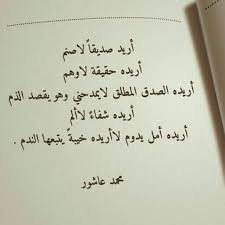 أريد صديقاً لاصنم
أريده حقيقة لاوهم
أريده الصدق المطلق لايمدحني وهو يقصد الذم
أريده شفاءً لاألم
أريده أمل يدوم لاأريده خيبةً يتبعها الندم .
محمد عاشور